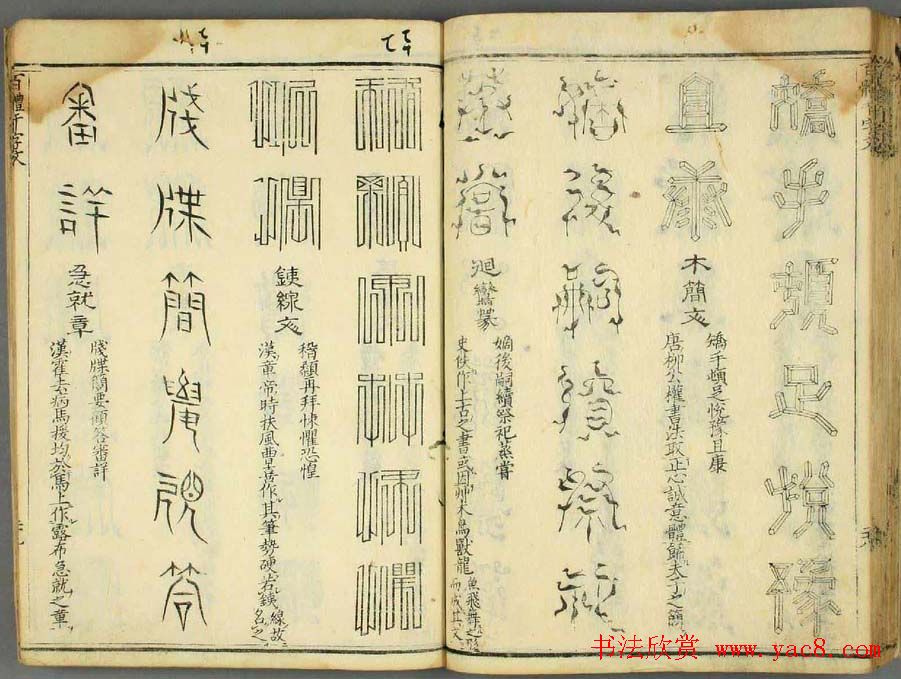 矯手頓足悅豫
且康
木簡文
矯手頓足悅豫且康
唐柳公權書法取正心誠意體
嫡後嗣續祭祀
蒸嘗
廻鸞篆
嫡後嗣續祭祀蒸嘗
史佚作上古之書或因艸木鳥獸龍魚飛舞之形
而成其文
稽顙再拜悚懼
恐惶
鐵線文
稽顙再拜悚懼恐惶
漢章帝時扶風曹喜作其筆勢硬若鐵線故
名之
牋牒簡要顧答
審詳
急就章
牋牒簡要顧答審詳
漢霍去病馬援均於馬上作露布急就之章
百體千字文
书法欣赏 www.yac8.com